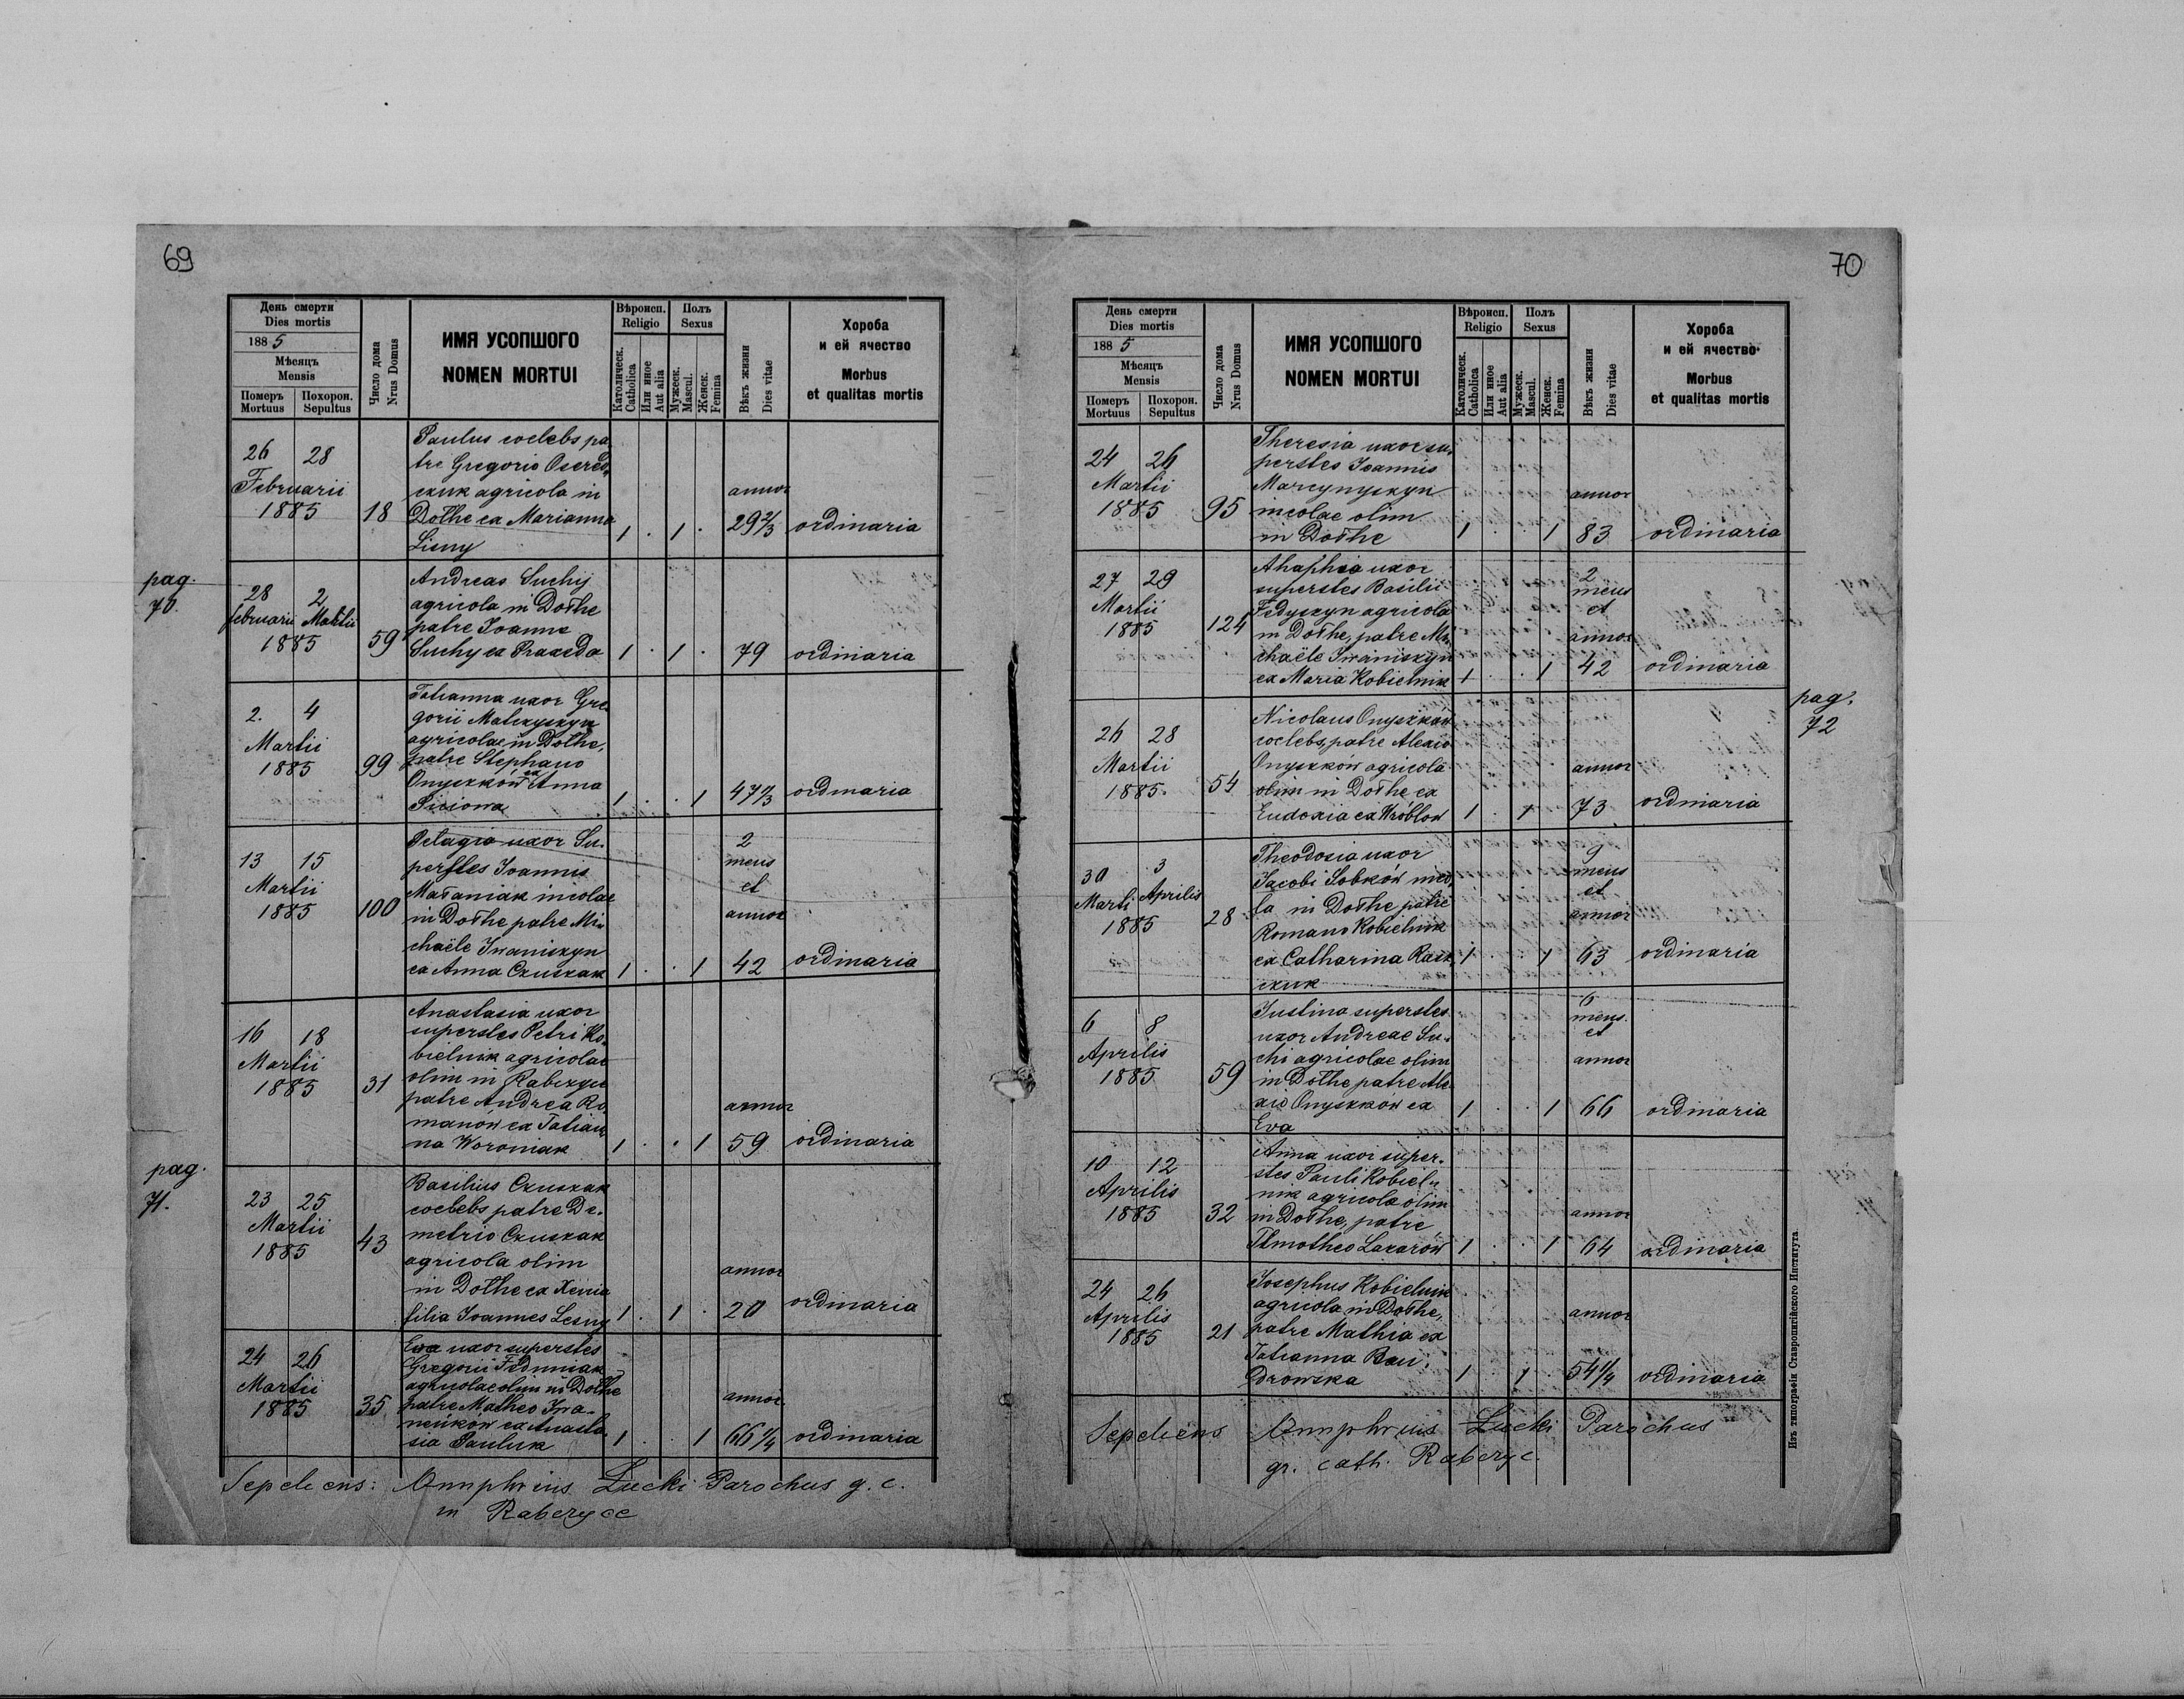 69
День смерти
Dies mortis
1885
Мѣсяцъ
Mensis
Померъ
Mortuus
Похорон.
Sepultus
Число дома
Nrus Domus
ИМЯ УСОПШОГО
NOMEN MORTUI
Вѣроисп.
Religio
Католическ.
Catholica
Или иное
Aut alia
Полъ
Sexus
Мужеск.
Mascul.
Женск.
Femina
Вѣкъ жизни
Dies vitae
Хороба
и ей ячество
Morbus
et qualitas mortis
26 28
Februarii
1885
18
Paulus coelebs pa-
tre Gregorio Osered-
czuk agricola in
Dołhe ex Marianna
Lisny
1 . 1 .
annor
29 2/3
ordinaria
pag.
70.
28 2
februarii Martii
1885
59
Andreas Suchij
agricola in Dołhe
patre Joanne
Suchy ex Praxeda
1 . 1 .
79
ordinaria
2. 4
Martii
1885
99
Tatianna uxor Gre-
gorii
agricolae in Dołhe,
patre Stephano
Onyszków ex Anna
1 . . 1
ordinaria
13 15
Martii
1885
100
Pelagia uxor Su-
perstes Joannis
Mataniak incolae
in Dołhe patre Mi-
chaële Iwaniszyn
ex Anna Czuszak
1 . . 1
2
mens
et
annor
42
ordinaria
16 18
Martii
1885
31
Anastasia uxor
superstes Petri Ko-
bielnik agricolae
olim in Rabczyce
patre Andrea Ro-
manów ex Tatian-
na Woroniak
1 . . 1
annor
59
ordinaria
pag.
71.
23 25
Martii
1885
43
Basilius Czuszak
coelebs patre De-
metrio Czuszak
agricola olim
in Dołhe ex Xenia
filia Joannes Lesny
1 . 1 .
annor
20
ordinaria
24 26
Martii
1885
35
Eva uxor superstes
Gregorii Fedyniak
agricolae olim in Dołhe
patre Matheo Iwa-
ex Anasta-
sia Pauluk
1 . . 1
annor
66 1/4
ordinaria
Sepeliens: Onuphrius Łucki Parochus g. c.
in Rabczyce
70
День смерти
Dies mortis
1885
Мѣсяцъ
Mensis
Померъ
Mortuus
Похорон.
Sepultus
Число дома
Nrus Domus
ИМЯ УСОПШОГО
NOMEN MORTUI
Вѣроисп.
Religio
Католическ.
Catholica
Или иное
Aut alia
Полъ
Sexus
Мужеск.
Mascul.
Женск.
Femina
Вѣкъ жизни
Dies vitae
Хороба
и ей ячество
Morbus
et qualitas mortis
24 26
Martii
1885
95
Theresia uxor su-
perstes Joannis
Marcynyszyn
incolae olim
in Dołhe
1 . . 1
annor
83
ordinaria
27 29
Martii
1885
124
Ahaphia uxor
superstes Basilii
Fedyszyn agricola
in Dołhe, patre Mi-
chaële Iwaniszyn
ex Maria Kobielnik
1 . . 1
2
mens
et
annor
42
ordinaria
pag.
72
26 28
Martii
1885.
54
Nicolaus Onyszków
coelebs, patre Alexio
Onyszków agricola
olim in Dołhe ex
Eudoxia ex Wróblow
1 . 1
annor
73
ordinaria
30 3
Marti Aprilis
1885
28
Theodosia uxor
Jacobi Sobków inco-
la in Dołhe patre
Romano Kobielnik
ex Catharina
czuk
1 . . 1
9
mens
et
annor
63
ordinaria
6 8
Aprilis
1885
59
Justina superstes
uxor Andreae Su-
chi agricolae olim
in Dołhe patre Ale-
xio Onyszków ex
Eva
1 . . 1
6
mens.
et
annor
66
ordinaria
10 12
Aprilis
1885
32
Anna uxor super-
stes Pauli Kobiel-
nik agricola olim
in Dołhe, patre
Timotheo Lazarów
1 . . 1
annor
64
ordinaria
24 26
Aprilis
1885
21
Josephus Kobielnik
agricola in Dołhe,
patre Mathia ex
Tatianna Ban-
drowska
1 1
annor
54 1/4
ordinaria
Sepeliens Onuphrius Łucki Parochus
gr. cath. Rabczyc.
Изъ типографіи Ставропигійского Института.